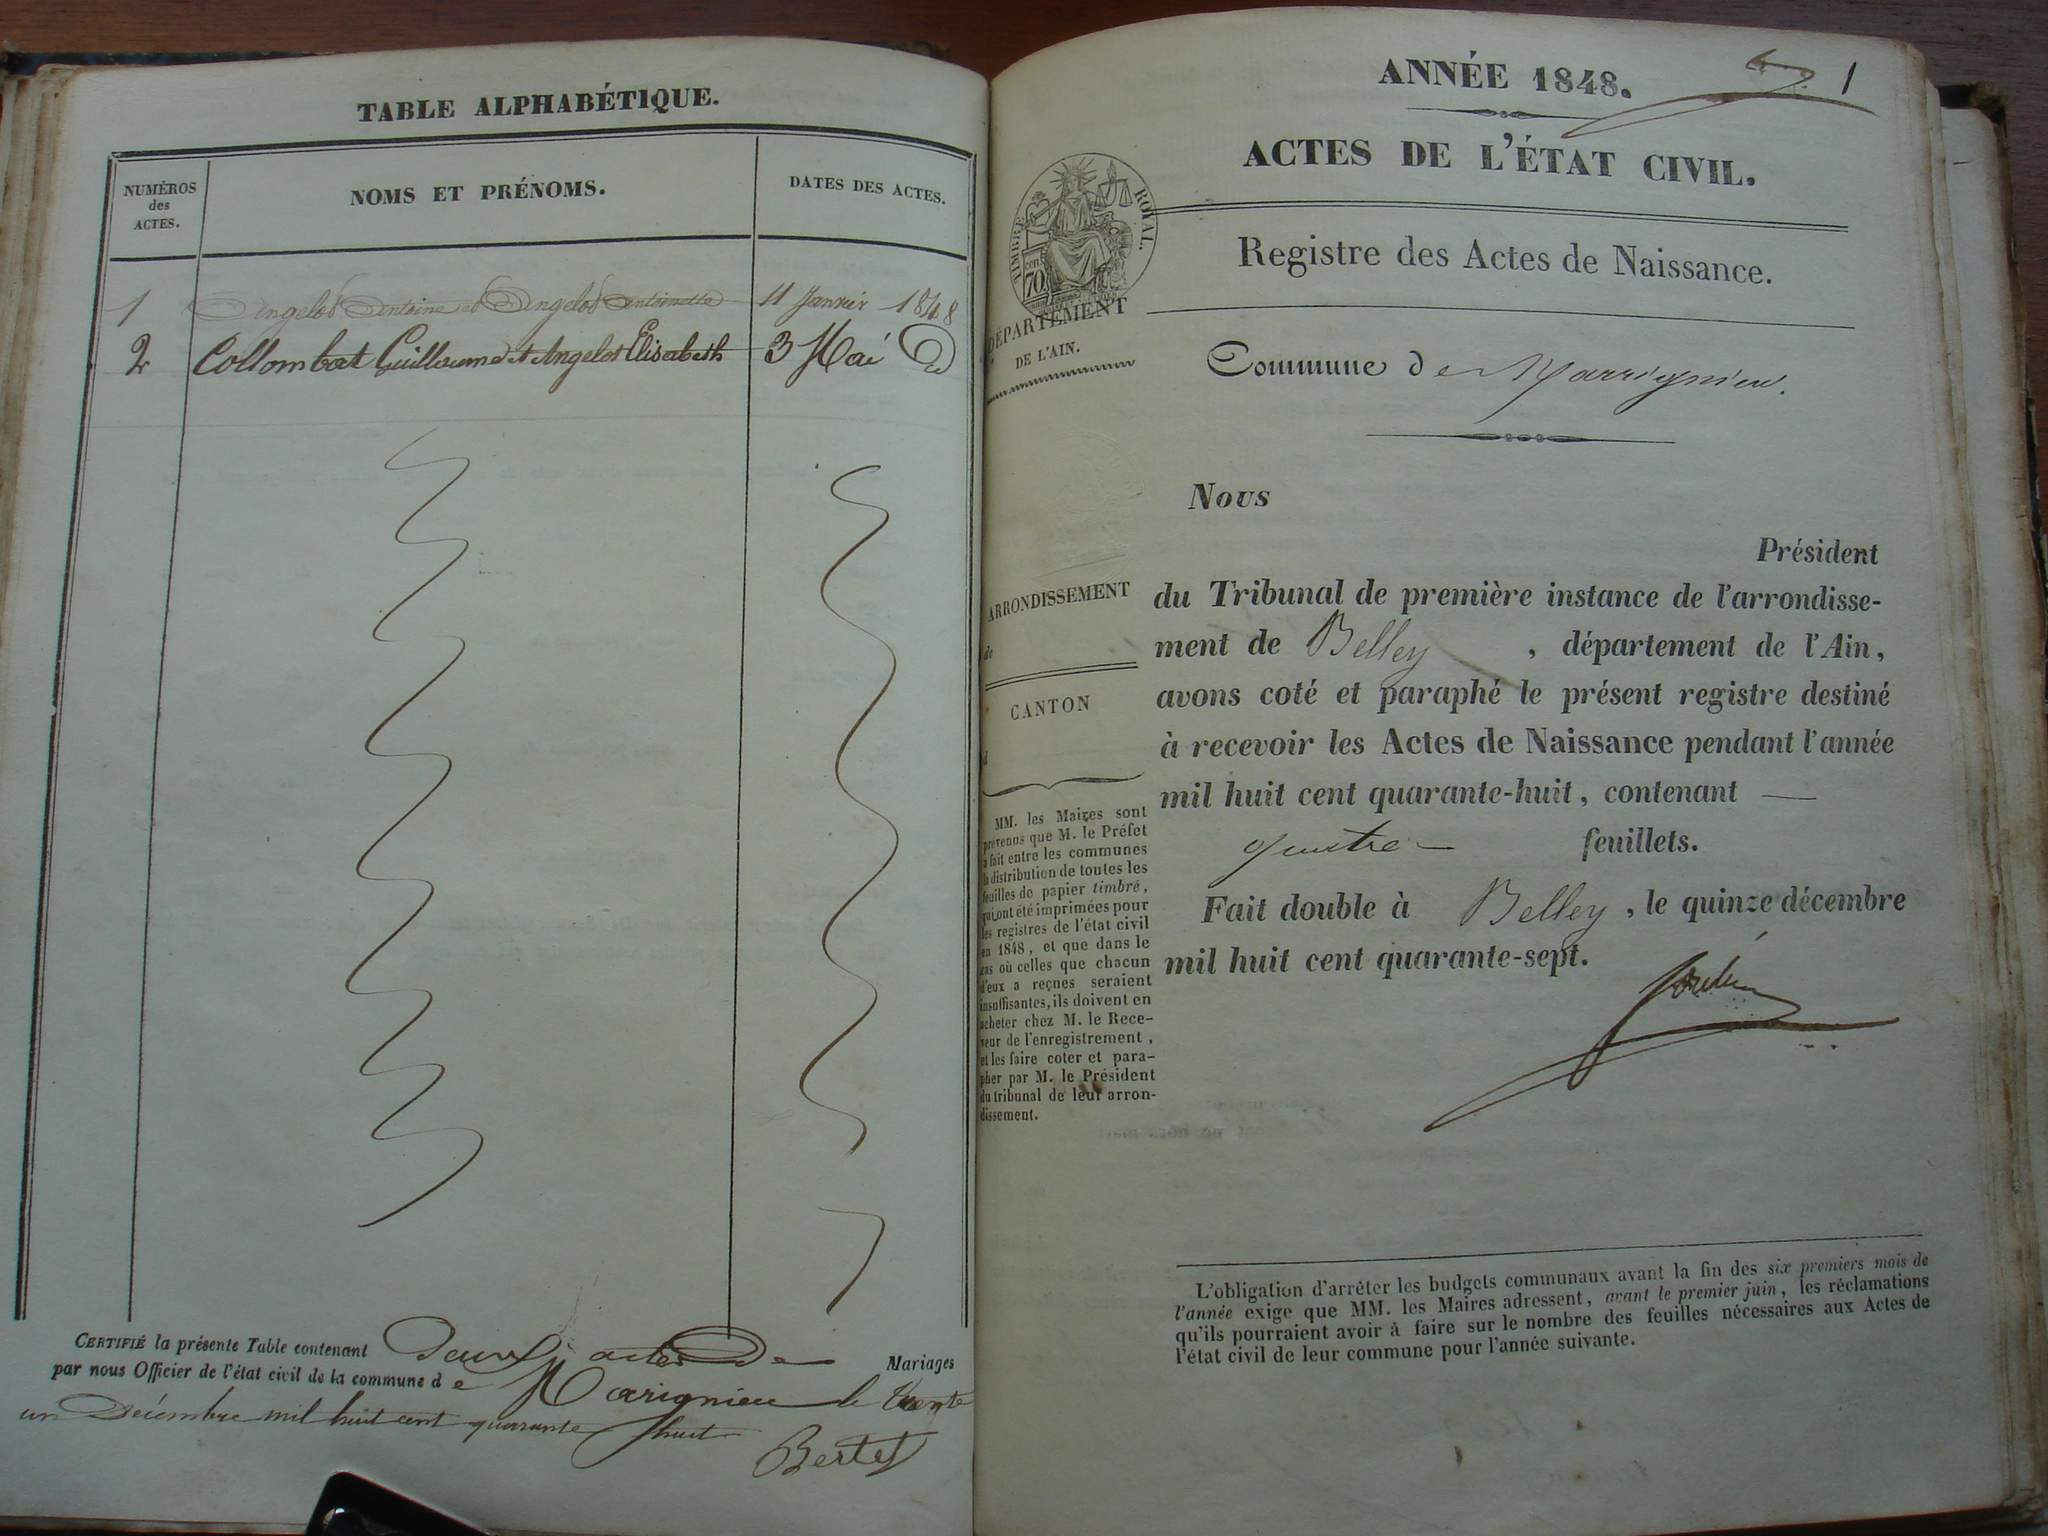 TABLE ALPHABÉTIQUE.
NUMÉROS
des
ACTES.
NOMS ET PRÉNOMS.
DATES DES ACTES.
1 Angelot Antoine et Angelot Antoinette 11 Janvier 1848
2 Collombat Guillaume et Angelot Elisabeth 3 Mai D
CERTIFIÉ la présente Table contenant Deux actes De Mariages
par nous Officier de l'état civil de la commune de Marignieu le trente
un Décembre mil huit cent quarante huit
Bertet
1
ANNÉE 1848.
ACTES DE L'ÉTAT CIVIL.
TIMBRE ROYAL.
cen.
70
Registre des Actes de Naissance.
DÉPARTEMENT
DE L'AIN.
Commune de Marrignieu.
Nous
Président
ARRONDISSEMENT
de
CANTON
d
du Tribunal de première instance de l'arrondisse-
ment de Belley, département de l'Ain,
avons coté et paraphé le présent registre destiné
à recevoir les Actes de Naissance pendant l'année
mil huit cent quarante-huit, contenant —
quatre feuillets.
Fait double à Belley, le quinze décembre
mil huit cent quarante-sept.
MM. les Maires sont
prévenus que M. le Préfet
a fait entre les communes
la distribution de toutes les
feuilles de papier timbré,
qui ont été imprimées pour
les registres de l'état civil
en 1848, et que dans le
cas où celles que chacun
d'eux a reçues seraient
insuffisantes, ils doivent en
acheter chez M. le Rece-
veur de l'enregistrement,
et les faire coter et para-
pher par M. le Président
du tribunal de leur arron-
dissement.
L'obligation d'arrêter les budgets communaux avant la fin des six premiers mois de
l'année exige que MM. les Maires adressent, avant le premier juin, les réclamations
qu'ils pourraient avoir à faire sur le nombre des feuilles nécessaires aux Actes de
l'état civil de leur commune pour l'année suivante.